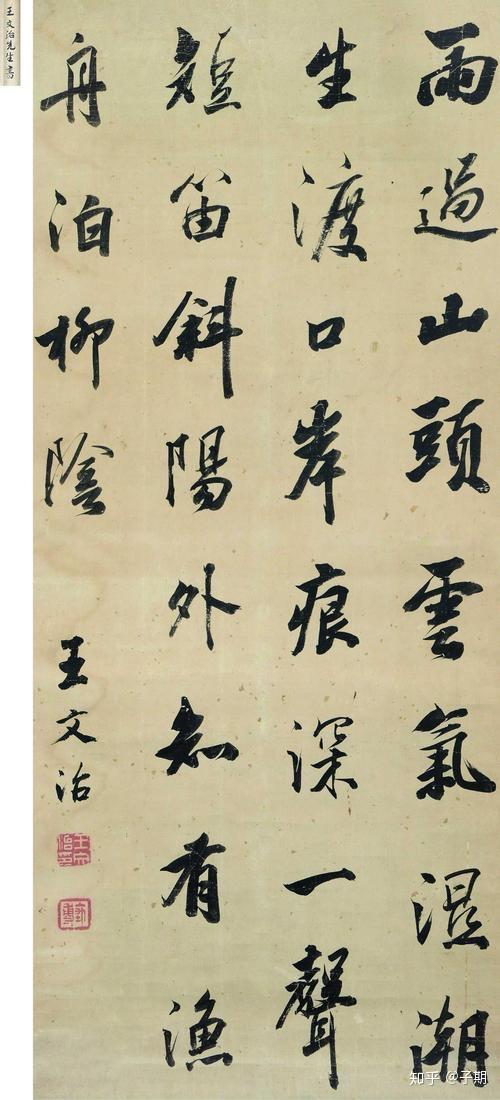 雨過山頭雲氣湿潮
生渡口岸痕深一聲
短笛斜陽外知有漁
舟泊柳陰
王文治
王文治先生書
知乎 @子期